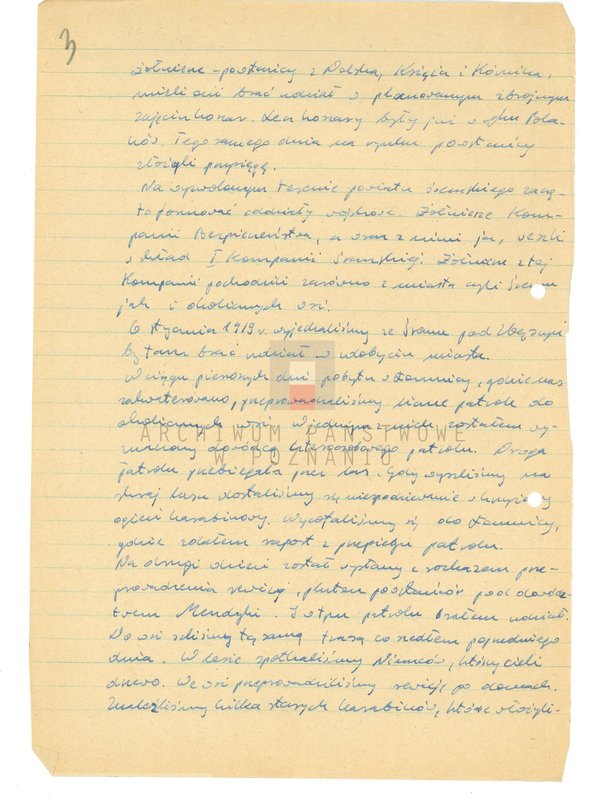 3
żołnierze-powstańcy z Dolska, Książa i Kórnika,
mieli oni brać udział w planowanym zbrojnym
zajęciu koszar. Lecz koszary były już w ręku Pola-
ków. Tego samego dnia na rynku powstańcy
złożyli przysięgę.
Na wyzwolonym terenie powiatu śremskiego zaczę-
to formować oddziały wojskowe. Żołnierze Kom-
panii Bezpieczeństwa, a wraz z nimi ja, weszli
w skład I Kompanii Śremskiej. Żołnierze z tej
Kompanii pochodzili zarówno z miasta czyli Śremu
jak i okolicznych wsi.
6 stycznia 1919 r. wyjechaliśmy ze Śremu pod Zbąszyń
by tam brać udział w zdobyciu miasta.
W ciągu pierwszych dni pobytu w Łomnicy, gdzie nas
zakwaterowano, przeprowadzaliśmy liczne patrole do
okolicznych wsi. W jednym z nich zostałem wy-
znaczony dowódcą czteroosobowego patrolu. Droga
patrolu przebiegała przez las. Gdy wyszliśmy na
skraj lasu dostaliśmy się niespodziewanie w krzyżowy
ogień karabinowy. Wycofaliśmy się do Łomnicy,
gdzie zdałem raport z przebiegu patrolu.
Na drugi dzień został wysłany z rozkazem prze-
prowadzenia rewizji, pluton powstańców pod dowódz-
twem Mendyki. I w tym patrolu brałem udział.
Do wsi szliśmy tą samą trasą co szedłem poprzedniego
dnia. W lesie spotkaliśmy Niemców, którzy cięli
drzewo. We wsi przeprowadziliśmy rewizję po domach.
Znaleźliśmy kilka starych karabinów, które złożyli-
ARCHIWUM PAŃSTWOWE
W POZNANIU